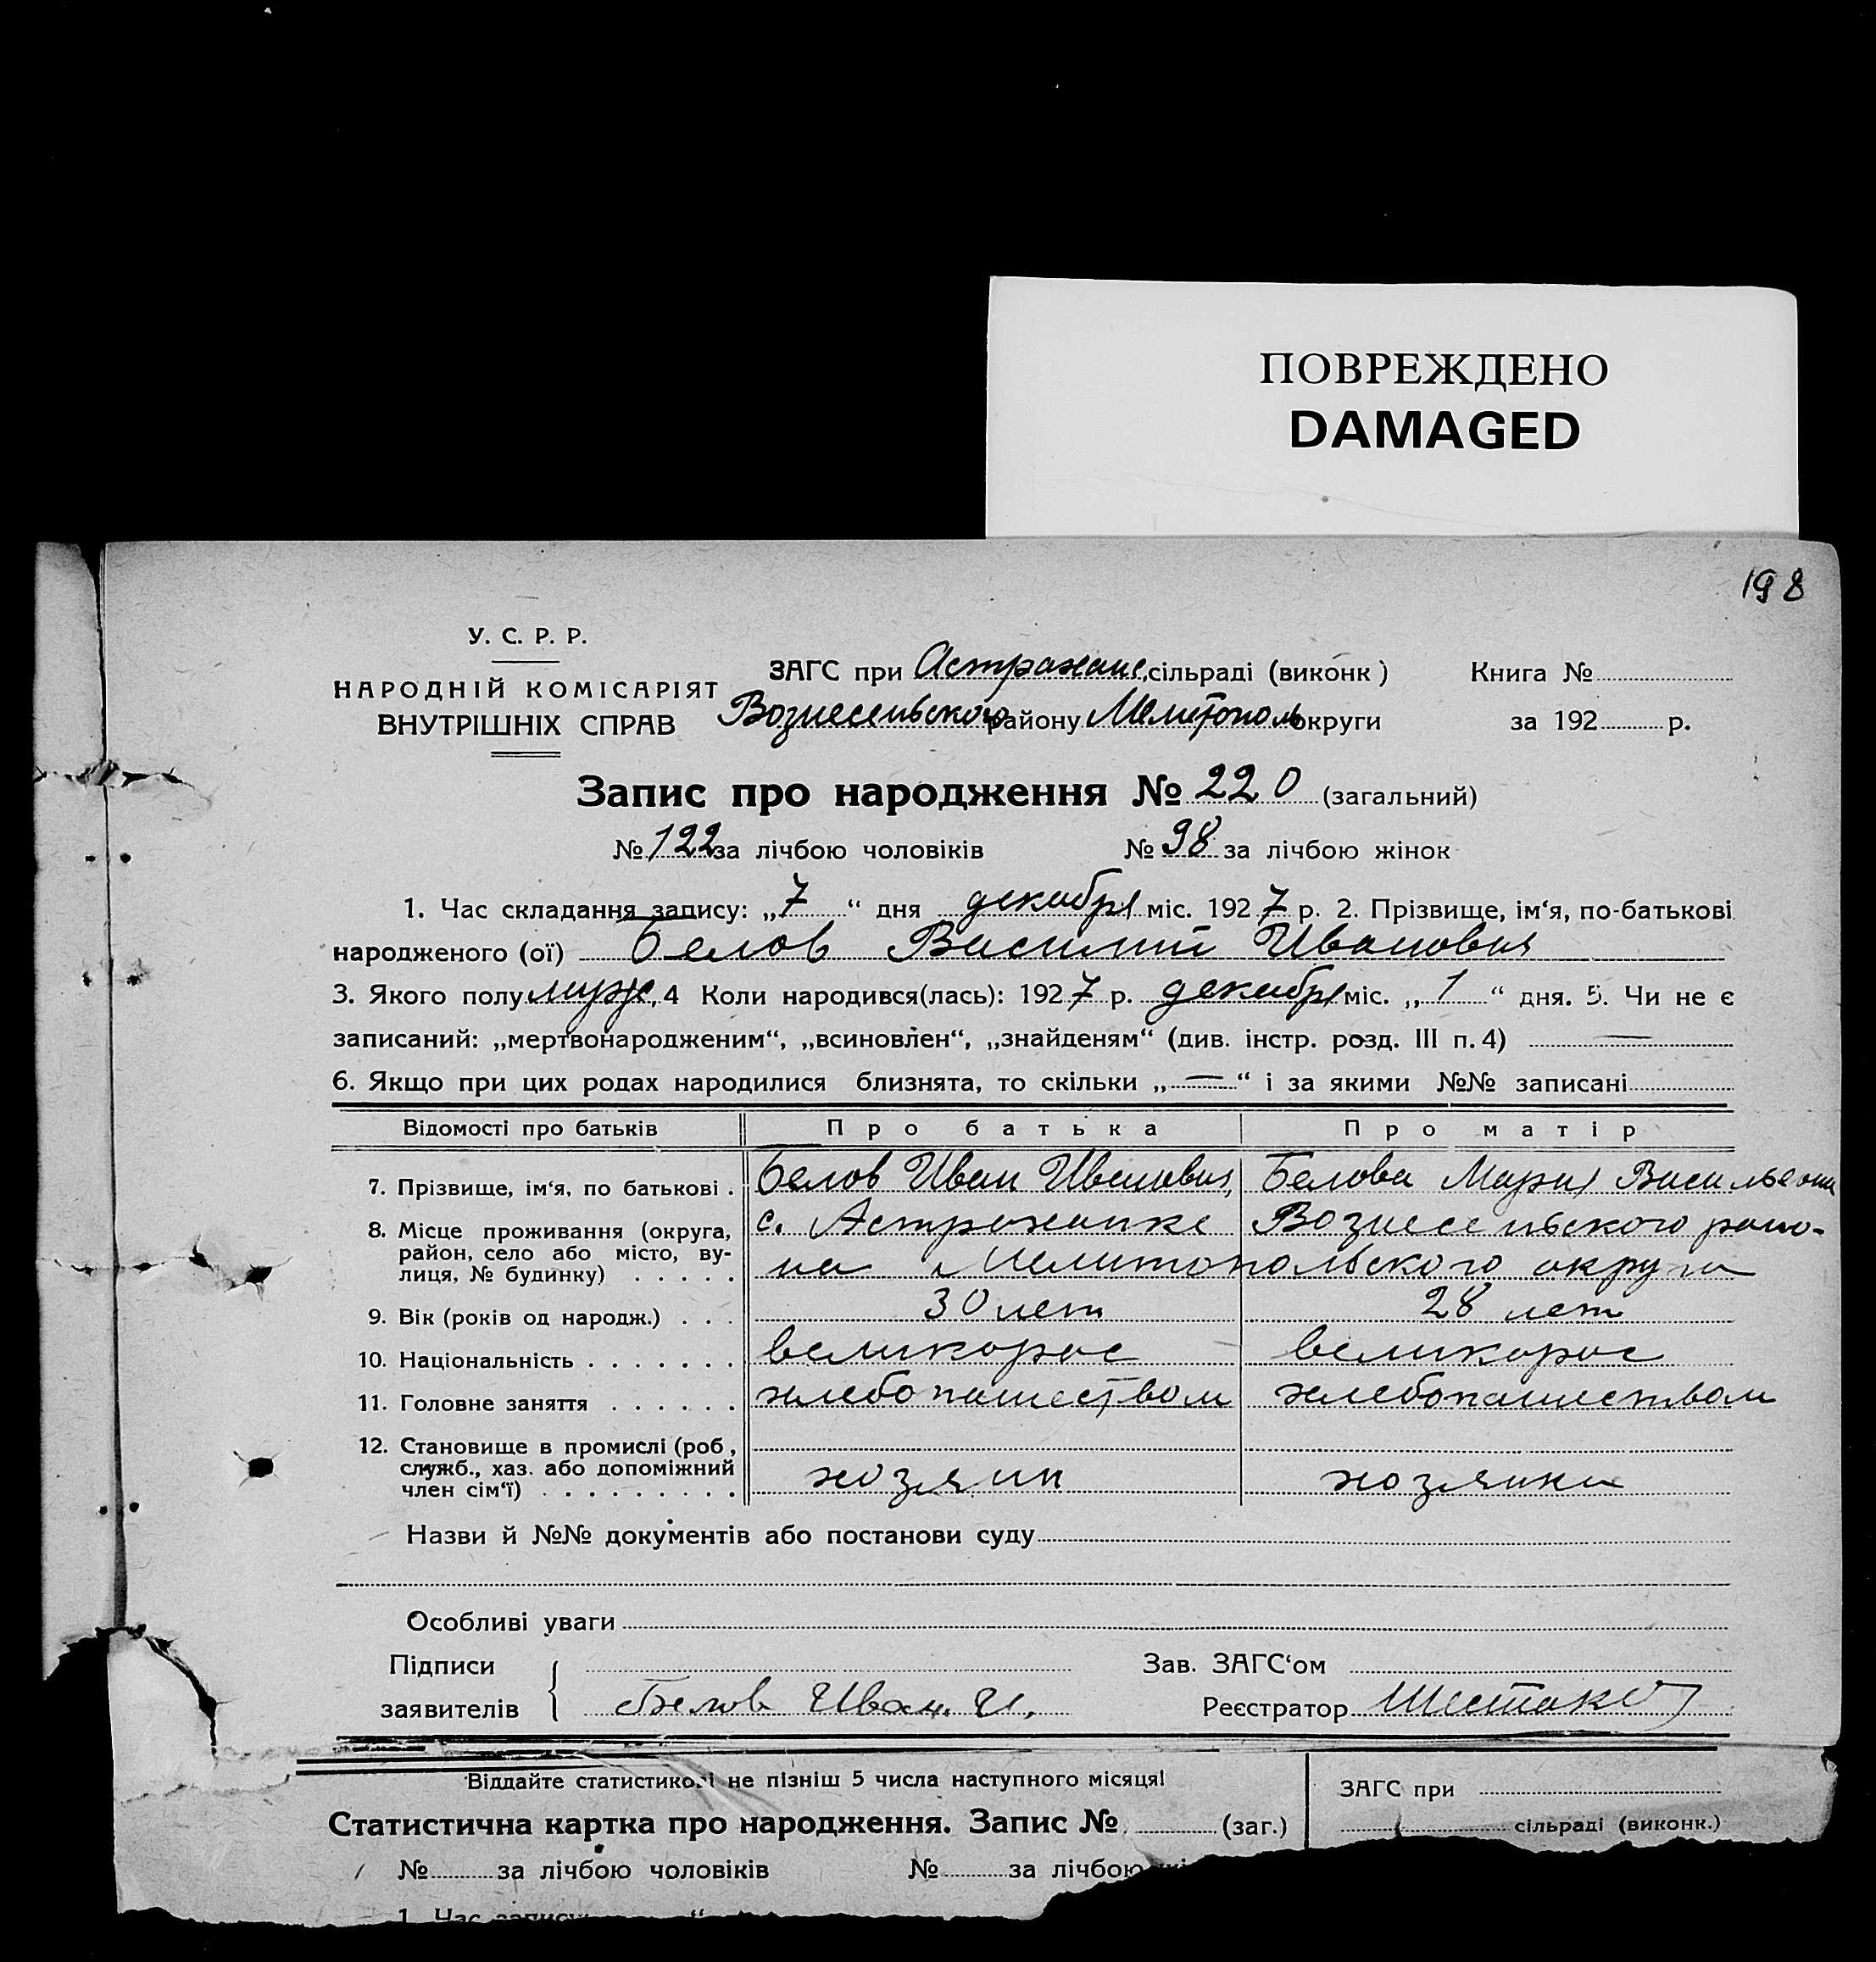 ПОВРЕЖДЕНО
DAMAGED
198
У. С. Р. Р.
НАРОДНІЙ КОМІСАРІЯТ
ВНУТРІШНІХ СПРАВ
ЗАГС при Астрахане, сільраді (виконк )
Вознесеньского району Мелитополь округи
Книга №
за 192 р.
Запис про народження № 220 (загальний)
№ 122 за лічбою чоловіків № 98 за лічбою жінок
1. Час складання запису: „7“ дня декабря міс. 1927 р. 2. Прізвище, ім‘я, по-батькові
народженого (ої) Белов Василий Иванович
3. Якого полу муж, 4 Коли народився(лась): 1927 р. декабря міс. „1“ дня. 5. Чи не є
записаний: „мертвонародженим“, „всиновлен“, „знайденям“ (див. інстр. розд. III п. 4) —
6. Якщо при цих родах народилися близнята, то скільки „—“ і за якими №№ записані
Відомості про батьків Про батька Про матір
7. Прізвище, ім‘я, по батькові . Белов Иван Иванович, Белова Мария Васильевна
8. Місце проживання (округа, с. Астраханке Вознесеньского райо-
район, село або місто, ву-
лиця, № будинку) . . . . . на Мелитопольского округа
9. Вік (років од народж.) . . . 30 лет 28 лет
10. Національність . . . . . . . великорос великорос
11. Головне заняття . . . . . . хлебопашеством хлебопашеством
12. Становище в промислі (роб ,
служб., хаз. або допоміжний
член сім‘ї) . . . . . . . . . хозяин хозяйка
Назви й №№ документів або постанови суду
Особливі уваги
Підписи
заявителів Белов Иван. И.
Зав. ЗАГС‘ом
Реєстратор Шестаков
Віддайте статистикові не пізніш 5 числа наступного місяця!
Статистична картка про народження. Запис № (заг.)
ЗАГС при
сільраді (виконк.)
№ за лічбою чоловіків № за лічбою
1. Час запису